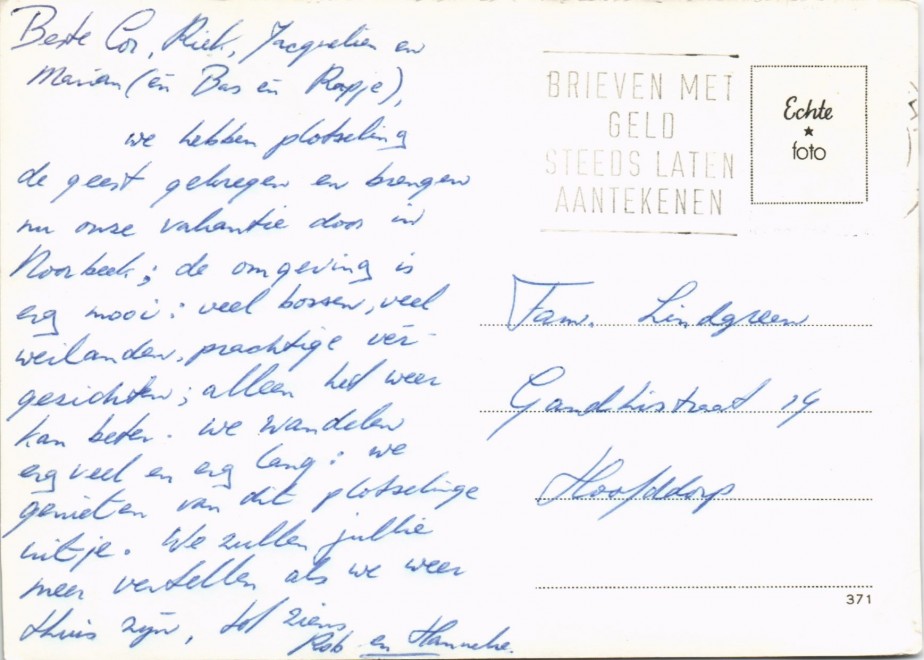 Beste Cor, Riek, Jacquelien en
Marian (en Bas en Rapje),
we hebben plotseling
de geest gekregen en brengen
nu onze vakantie door in
Noorbeek; de omgeving is
erg mooi: veel bossen, veel
weilanden, prachtige ver-
gezichten; alleen het weer
kan beter. We wandelen
erg veel en erg lang: we
genieten van dit plotselinge
uitje. We zullen jullie
meer vertellen als we weer
thuis zijn, tot ziens
Rob en Hanneke.
BRIEVEN MET
GELD
STEEDS LATEN
AANTEKENEN
Echte
★
foto
Fam. Lindgreen
Gandhistraat 14
Hoofddorp
371